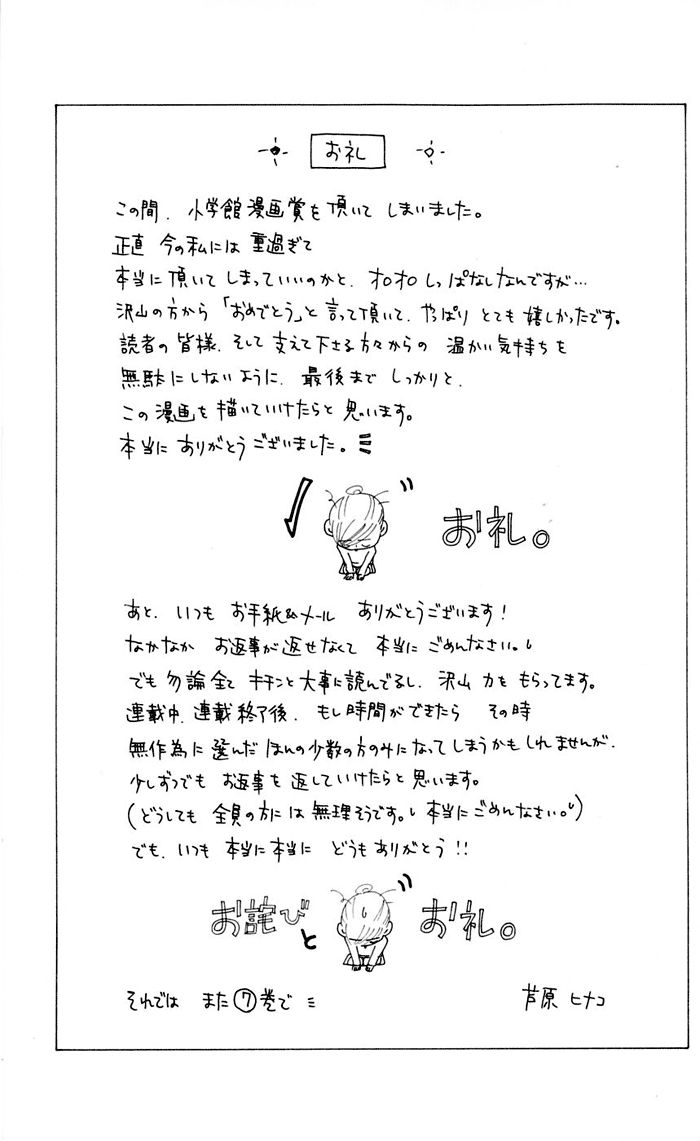 お礼
この間、小学館漫画賞を頂いてしまいました。
正直 今の私には 重過ぎて
本当に頂いてしまっていいのかと、オロオロしっぱなしなんですが…
沢山の方から「おめでとう」と言って頂いて、やっぱり とても嬉しかったです。
読者の皆様、そして支えて下さる方々からの 温かい気持ちを
無駄にしないように、最後まで しっかりと、
この漫画を描いていけたらと思います。
本当に ありがとうございました。
お礼。
あと、いつも お手紙&メール ありがとうございます!
なかなか お返事が返せなくて 本当に ごめんなさい。
でも 勿論全て キチンと大事に読んでるし、沢山 力を もらってます。
連載中、連載終了後、もし時間ができたら その時
無作為に選んだ ほんの少数の方のみになってしまうかもしれませんが、
少しずつでも お返事を返していけたらと思います。
(どうしても 全員の方には無理そうです。本当にごめんなさい。)
でも、いつも 本当に本当に どうもありがとう!!
お詫びと お礼。
それでは また⑦巻で 芦原 ヒナコ